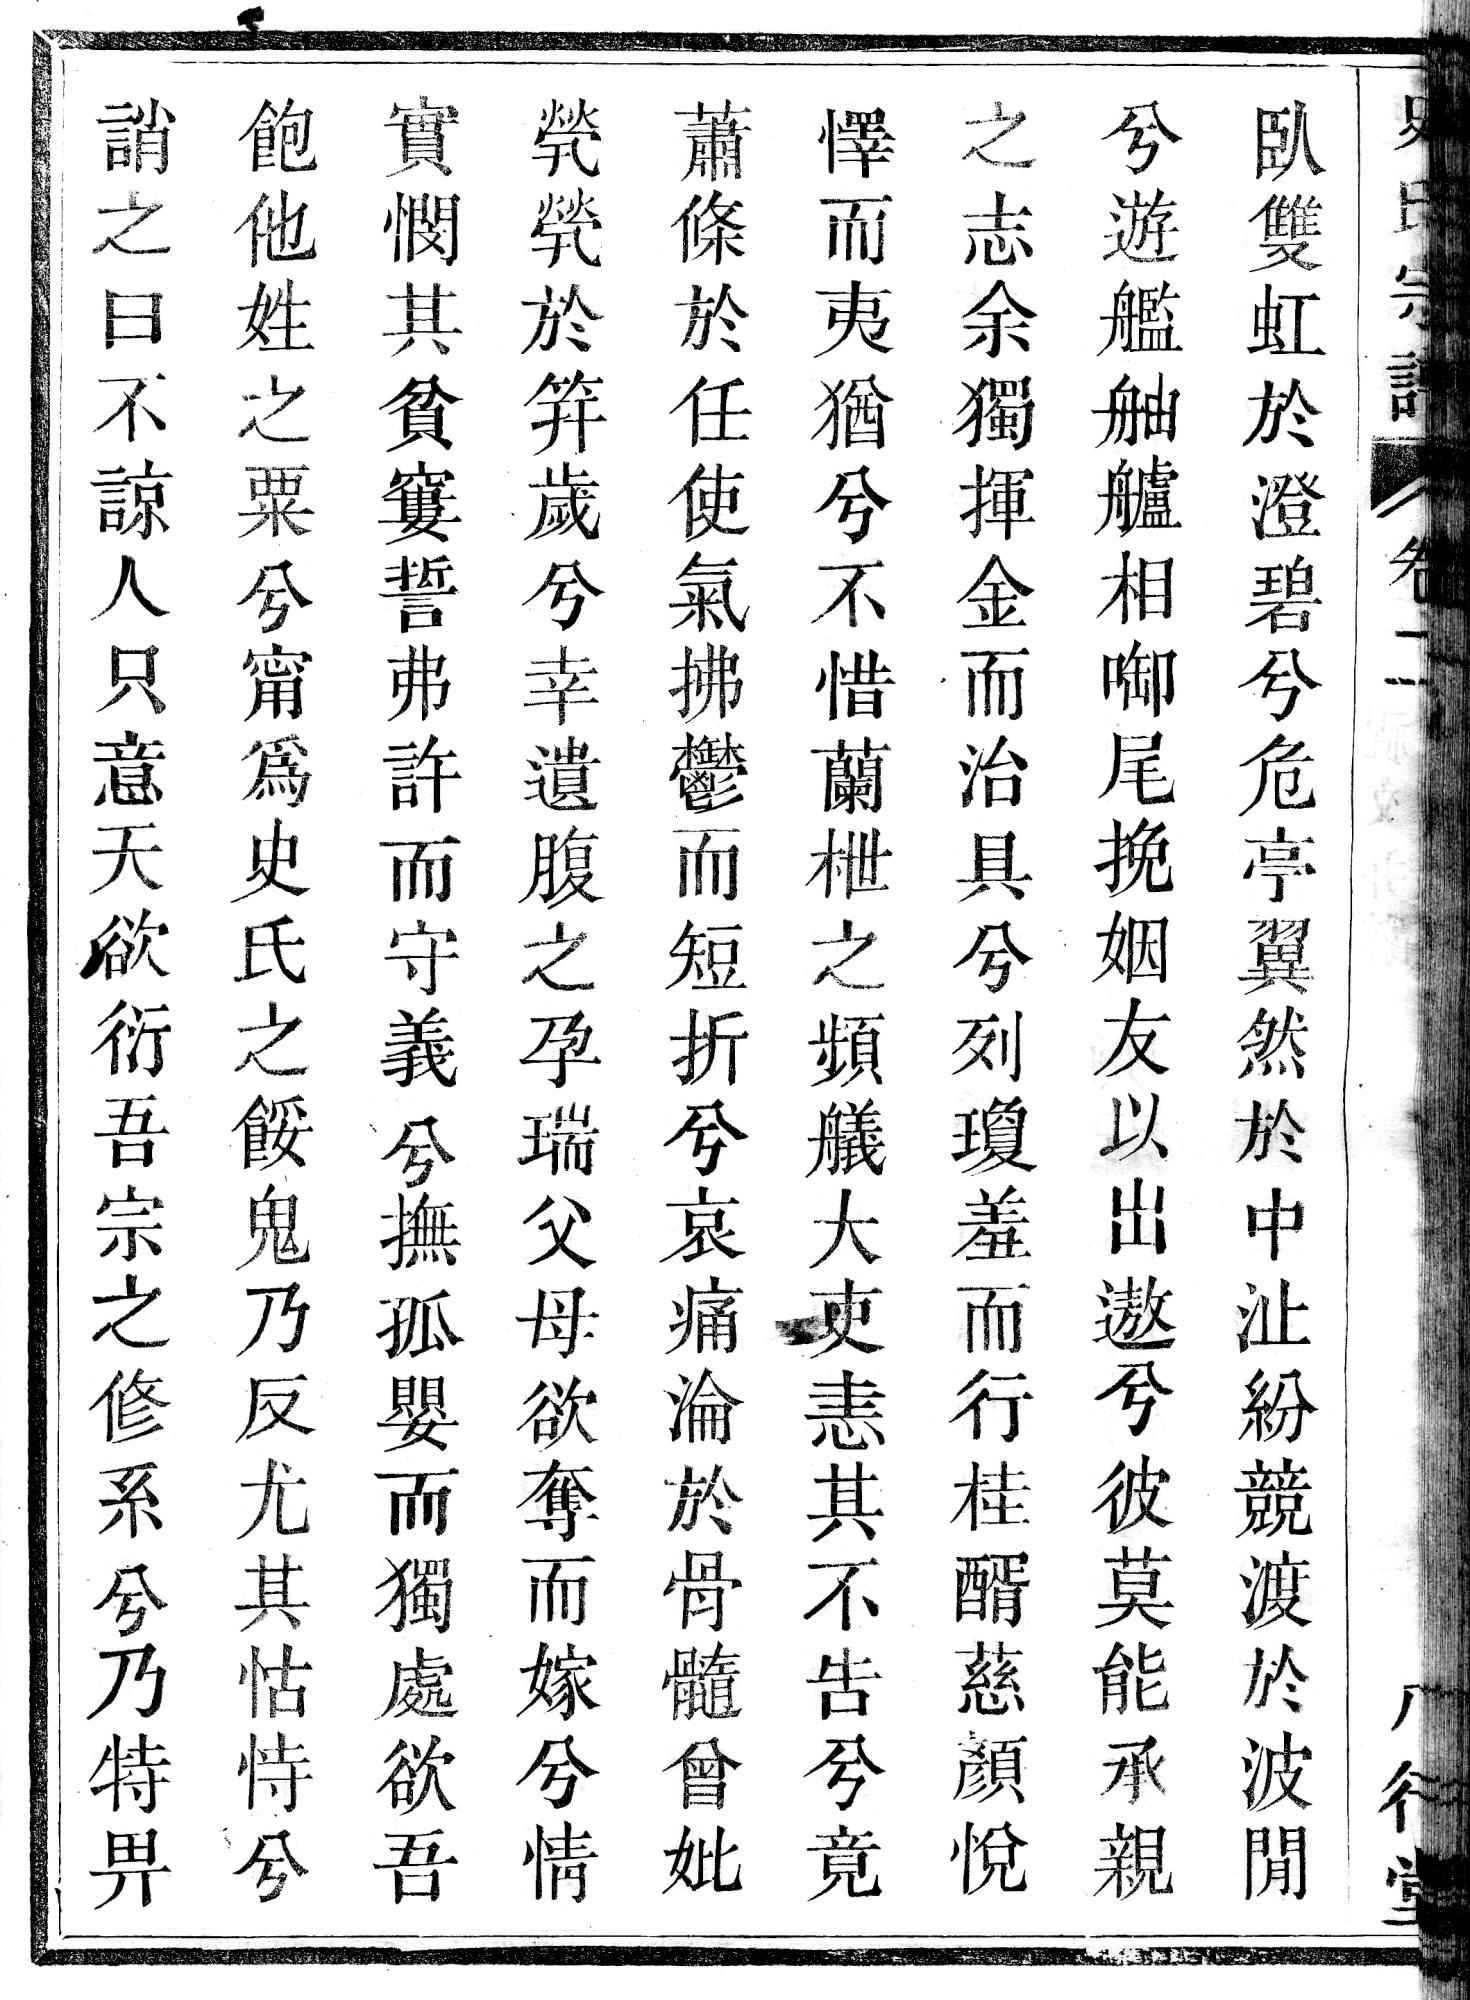 史氏宗譜 卷二 八行堂
臥雙虹於澄碧兮危亭翼然於中沚紛競渡於波閒
兮遊艦舳艫相啣尾挽姻友以出遨兮彼莫能承親
之志余獨揮金而治具兮列瓊羞而行桂醑慈顏悅
懌而夷猶兮不惜蘭枻之頻艤大吏恚其不告兮竟
蕭條於任使氣拂鬱而短折兮哀痛淪於骨髓曾妣
煢煢於筓歲兮幸遺腹之孕瑞父母欲奪而嫁兮情
實憫其貧窶誓弗許而守義兮撫孤嬰而獨處欲吾
飽他姓之粟兮甯爲史氏之餒鬼乃反尤其怙恃兮
誚之曰不諒人只意天欲衍吾宗之修系兮乃特畀